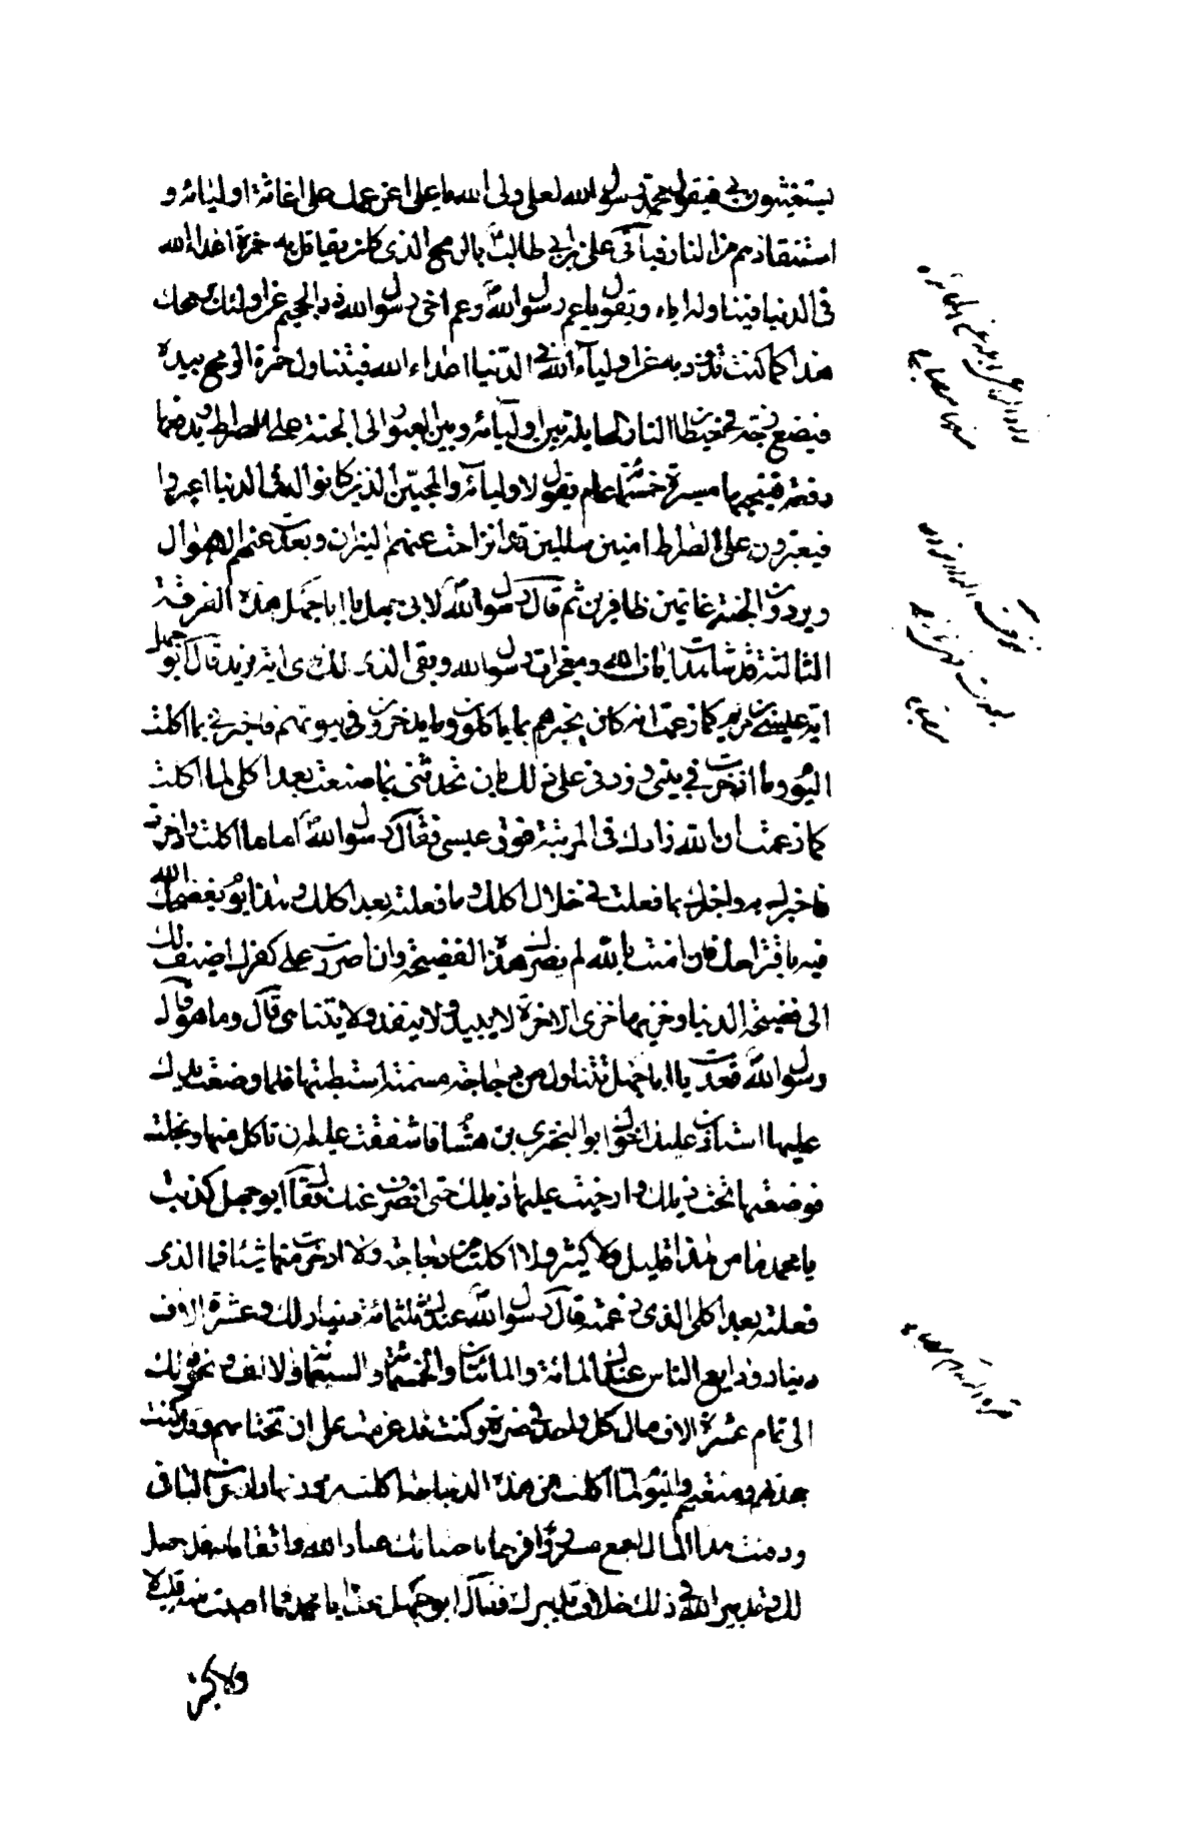 يستغيثون بي فيقول محمد رسول الله لعلي ولي الله يا علي اعن عمك على اغاثة اوليائه و
استنقاذهم من النار فياتي علي بن ابي طالب بالرمح الذي كان يقاتل به حمزة اعداء الله
في الدنيا فيناوله اياه ويقول يا عم رسول الله وعم اخي رسول الله ذد الجحيم عن اوليائك برمحك
هذا كما كنت تذود به عن اولياء الله في الدنيا اعداء الله فيتناول حمزة الرمح بيده
فيضع زجه في حيطان النار الحايلة بين اوليائه وبين العبور الى الجنة على الصراط ويدفعها
دفعة فينحيها مسيرة خمسمائة عام ثم يقول لاوليائه والمحبين الذين كانوا له في الدنيا اعبروا
فيعبرون على الصراط امنين سالمين قد انزاحت عنهم النيران وبعدت عنهم الاهوال
ويردون الجنة غانمين ظافرين ثم قال رسول الله لابي جهل يا ابا جهل هذه الفرقة
الثالثة قد شاهدت ايات الله ومعجزات رسول الله وبقي الذي لك فاي اية تريد قال ابو جهل
اية عيسى بن مريم كما زعمت انه كان يخبرهم بما ياكلون وما يدخرون في بيوتهم فاخبرني بما اكلت
اليوم وما ادخرت في بيتي وزدني على ذلك بان تحدثني بما صنعت بعد اكلي لما اكلت
كما زعمت ان الله زادك في المرتبة فوق عيسى فقال رسول الله اما ما اكلت وما ادخرت
فاخبرك به واخبرك بما فعلت في خلال اكلك وما فعلته بعد اكلك وهذا يوم يفضحك الله
فيه باقتراحك فان امنت بالله لم تضرك هذه الفضيحة وان اصررت على كفرك اضيف لك
الى فضيحة الدنيا وخزيها خزي الاخرة لا يبيد ولا ينفد ولا يتناهى قال وما هو قال
رسول الله قعدت يا ابا جهل تتناول من دجاجة مسمنة استطبتها فلما وضعت يدك
عليها استاذن عليك اخوك ابو البختري بن هشام فاشفقت عليه ان ياكل منها وبخلت
فوضعتها تحت ذيلك وارخيت عليها ذيلك حتى انصرف عنك فقال ابو جهل كذبت
يا محمد ما من هذا قليل ولا كثير ولا اكلت من دجاجة ولا ادخرت منها شيئا فما الذي
فعلته بعد اكلي الذي زعمته قال رسول الله عندك ثلثمائة دينار لك وعشرة الاف
دينار ودايع الناس عندك المائة والمائتان والخمسمائة والسبعمائة والالف ونحو ذلك
الى تمام عشرة الاف مال كل واحد في صرة وكنت قد عزمت على ان تختانهم وقد كنت
جحدتهم ومنعتهم واليوم لما اكلت من هذه الدجاجة اكلت زورها وادخرت الباقي
ودفنت هذا المال اجمع مسرورا فرحا باختيانك عباد الله واثقا بانه قد حصل
لك وتدبير الله في ذلك خلاف تدبيرك فقال ابو جهل وهذا يا محمد فما اصبت منه قليلا
ولا كثيرا